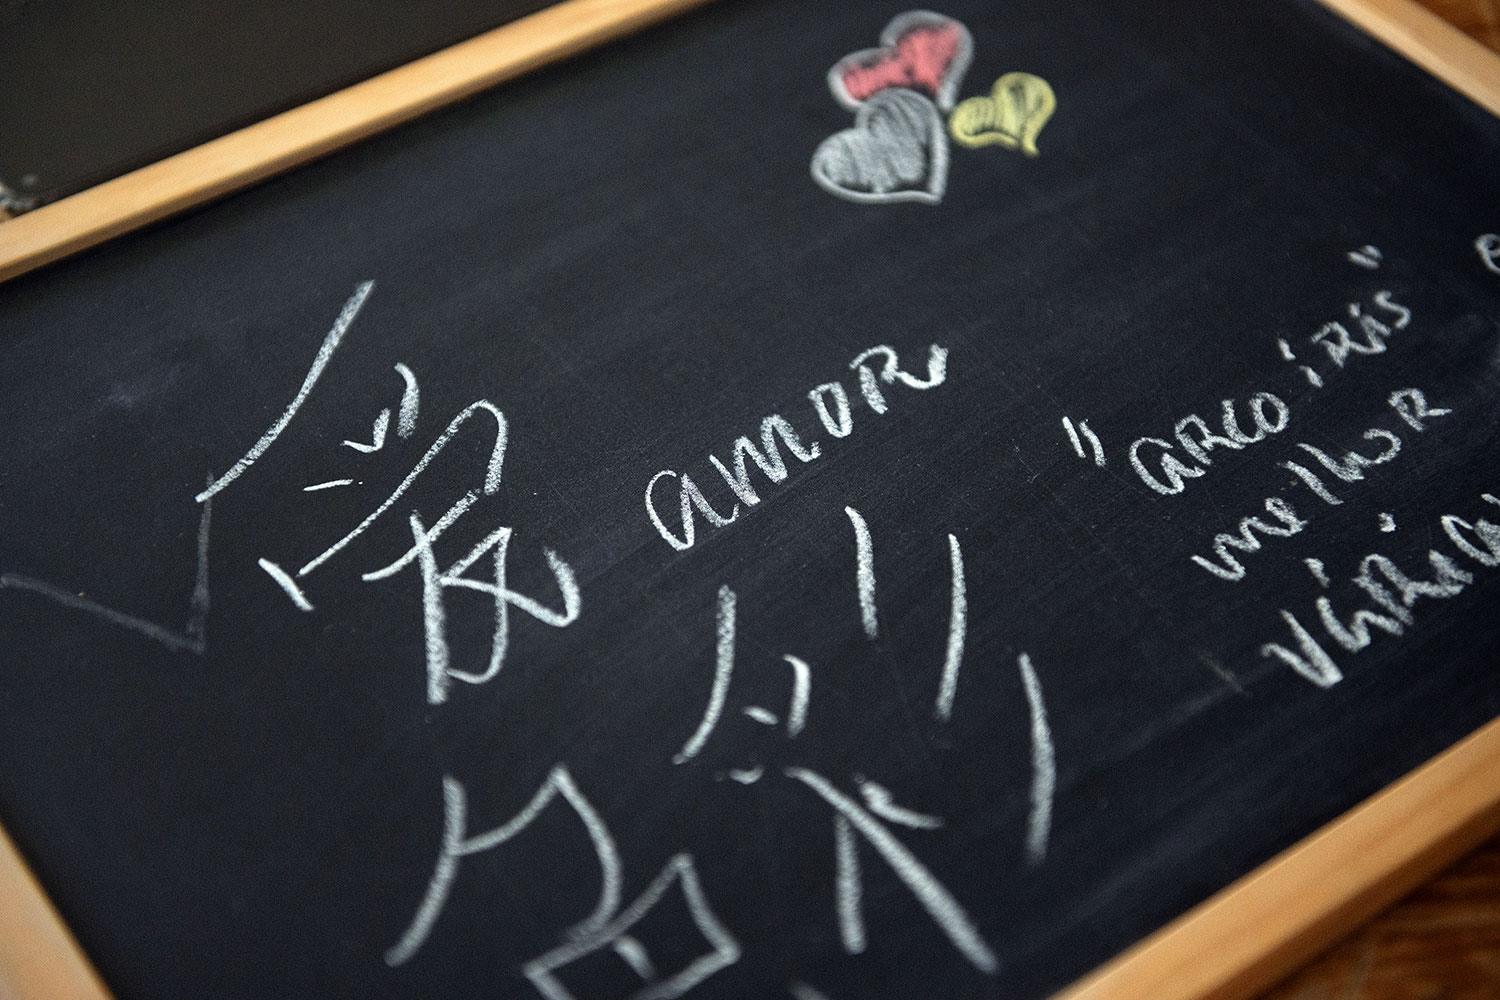 愛 amor
色彩
"arco iris"
melhor
vária